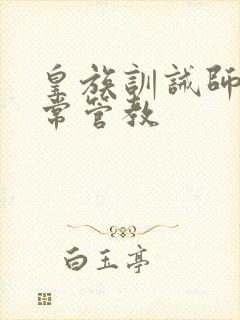 皇族訓誡師
常管教
白玉亭